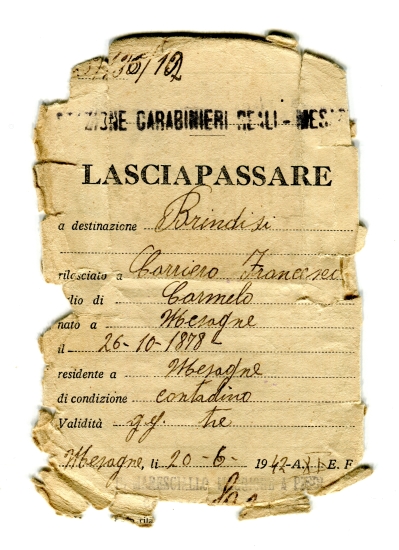 STAZIONE CARABINIERI REALI - MESA
LASCIAPASSARE
a destinazione Brindisi
rilasciato a Corriero Francesc
glio di Carmelo
nato a Mesagne
il 26-10-1878
residente a Mesagne
di condizione contadino
Validità gg. tre
Mesagne, li 20-6-1942-A. E. F
MARESCIALLO